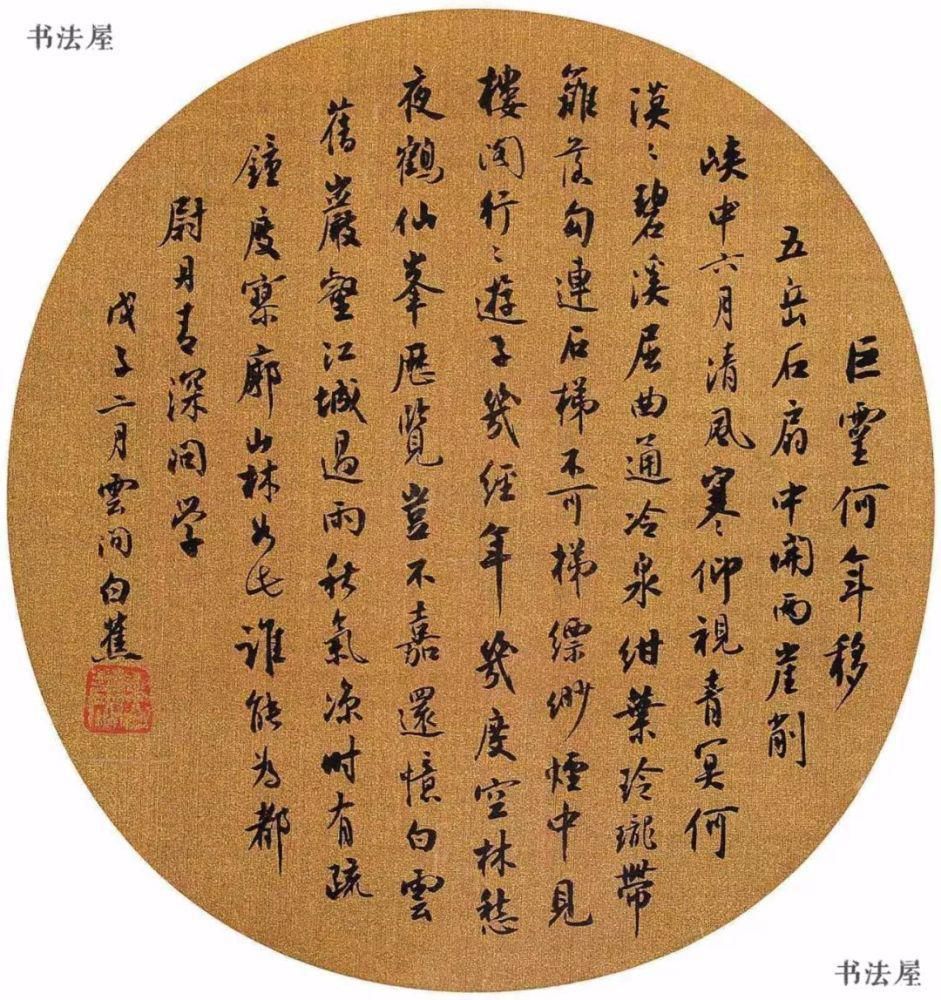 书法屋
巨靈何年移
五岳石扇中開兩崖削
峽中六月清風寒寒仰視青冥何
漠漠碧溪屈曲通冷泉紺葉玲瓏帶
籬落勾連石梯不可梯縹緲煙中見
樓閣行行遊子幾經年幾度空林愁
夜鶴仙峯歷覽豈不嘉還憶白雲
舊巖壑江城過雨秋氣涼時有疏
鐘度寥廓山林如此誰能為都
尉月青深同學
戊子二月雲間白蕉
书法屋